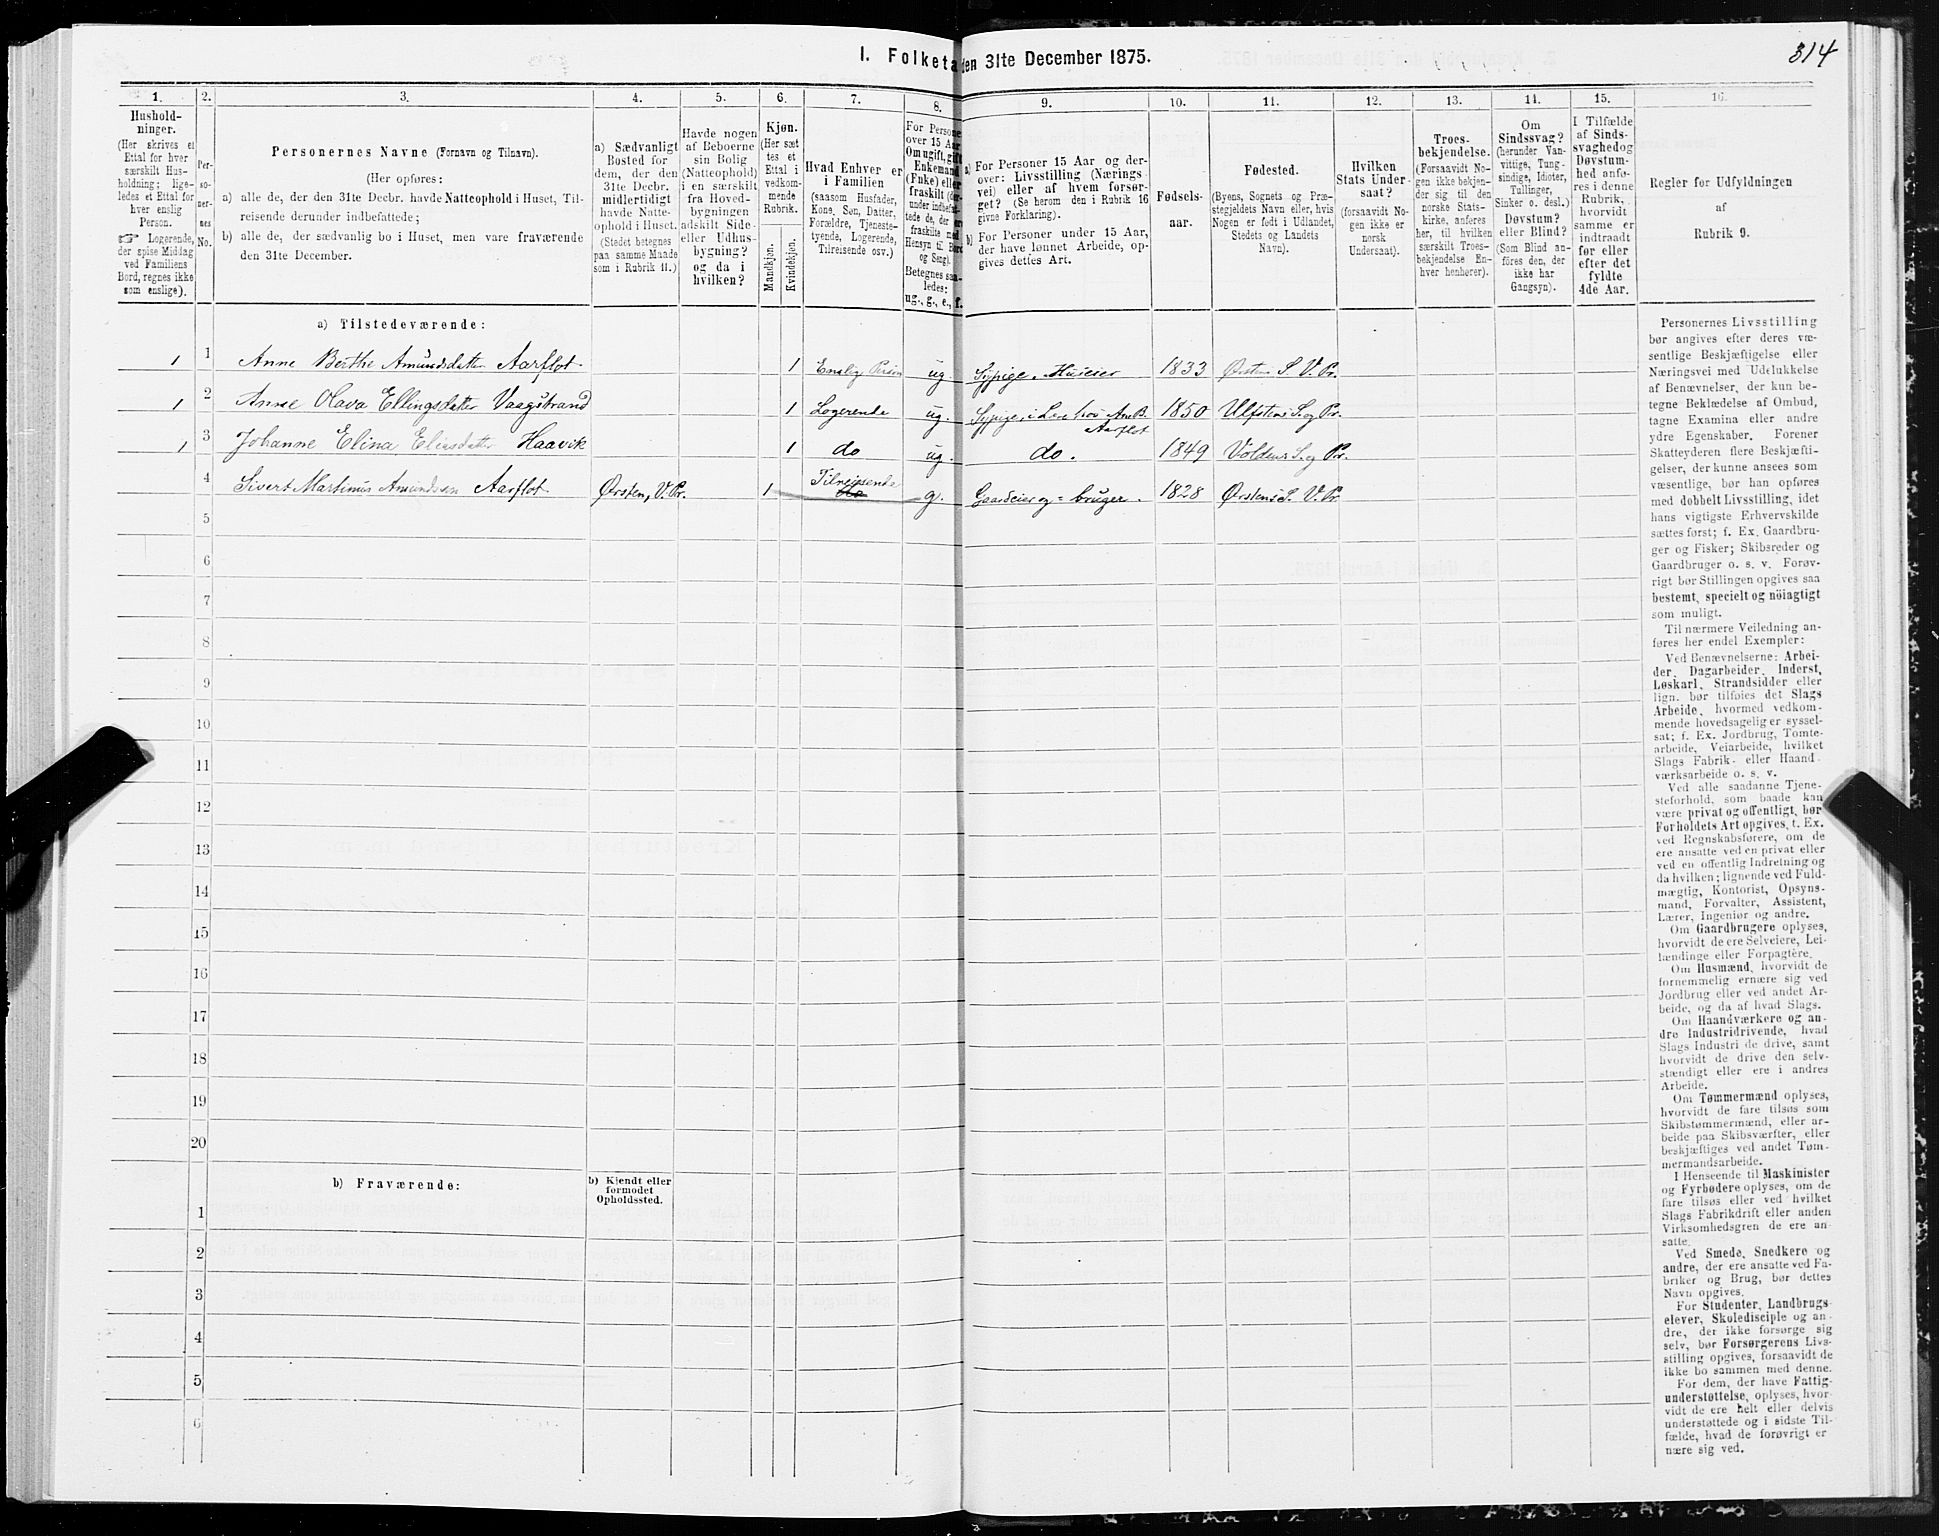 314
I. Folketa den 31te December 1875.
1. 2. 3. 4. 5. 6. 7. 8. 9. 10. 11. 12. 13. 14. 15. 16.
Hushold-
ninger.
(Her skrives et
Ettal for hver
særskilt Hus-
holdning; lige-
ledes et Ettal for
hver enslig
Person.
☞ Logerende,
der spise Middag
ved Familiens
Bord, regnes ikke
som enslige).
Per-
so-
ner-
nes
No.
Personernes Navne (Fornavn og Tilnavn).
(Her opføres:
a) alle de, der den 31te Decbr. havde Natteophold i Huset, Til-
reisende derunder indbefattede;
b) alle de, der sædvanlig bo i Huset, men vare fraværende
den 31te December.
a) Sædvanligt
Bosted for
dem, der den
31te Decbr.
midlertidigt
havde Natte-
ophold i Huset.
(Stedet betegnes
paa samme Maade
som i Rubrik 11.)
Havde nogen
af Beboerne
sin Bolig
(Natteophold)
i en særskilt
fra Hoved-
bygningen
adskilt Side-
eller Udhus-
bygning?
og da i
hvilken?
Kjøn.
(Her sæt
tes et
Ettal i
vedkom-
mende
Rubrik.
Mandkjøn.
Kvindekjøn.
Hvad Enhver er
i Familien
(saasom Husfader,
Kone, Søn, Datter,
Forældre, Tjeneste-
tyende, Logerende,
Tilreisende osv.)
For Persone
over 15 Aar
Om ugift, gift
Enkemand
(Enke) eller
fraskilt (der-
under indbefat-
tede de, der ere
fraskilte med
Hensyn til Bord
og Seng).
Betegnes saa-
ledes:
ug., g., e., f.
a) For Personer 15 Aar og der-
over: Livsstilling (Nærings-
vei) eller af hvem forsør-
get? (Se herom den i Rubrik 16
givne Forklaring).
b) For Personer under 15 Aar,
der have lønnet Arbeide, op-
gives dettes Art.
Fødsels-
aar.
Fødested.
(Byens, Sognets og Præ-
stegjeldets Navn eller, hvis
Nogen er født i Udlandet,
Stedets og Landets
Navn).
Hvilken
Stats Under-
saat?
(forsaavidt No-
gen ikke er
norsk
Undersaat).
Troes-
bekjendelse.
(Forsaavidt No-
gen ikke bekjen-
der sig til den
norske Stats-
kirke, anføres
her, til hvilken
særskilt Troes-
bekjendelse En-
hver henhører).
Om
Sindssvag?
(herunder Van-
vittige, Tung-
sindige, Idioter,
Tullinger,
Sinker o. desl.)
Døvstum?
eller Blind?
(Som Blind an-
føres den, der
ikke har
Gangsyn).
I Tilfælde
af Sinds-
svaghed og
Døvstum-
hed anfø-
res i denne
Rubrik,
hvorvidt
samme er
indtraadt
før eller
efter det
fyldte
4de Aar.
Regler for Udfyldningen
af
Rubrik 9.
a) Tilstedeværende:
1 1 Anne Berthe Amundsdatter Aarflot 1 Enslig Person ug. Sypige, Huseier 1833 Ørsten S. V. Pr.
1 2 Anne Olava Ellingsdatter Vaagstrand 1 Logerende ug. Sypige, i Lære hos An. B. Aarflot 1850 Ulfstens S. og Pr.
1 3 Johanne Elina Eliasdatter Haavik 1 do ug. do. 1849 Voldens S. og Pr.
4 Sivert Martinus Amundsen Aarflot Ørsten, V. Pr. 1 Tilreisende do g. Gaardeier og = bruger. 1828 Ørstens S. V. Pr.
5
6
7
8
9
10
11
12
13
14
15
16
17
18
19
20
b) Fraværende:
b) Kjendt eller
formodet
Opholdssted.
1
2
3
4
5
6
Personernes Livsstilling
bør angives efter deres væ-
sentlige Beskjæftigelse eller
Næringsvei med Udelukkelse
af Benævnelser, der kun be-
tegne Beklædelse af Ombud,
tagne Examina eller andre
ydre Egenskaber. Forener
Skatteyderen flere Beskjæfti-
gelser, der kunne ansees som
væsentlige, bør han opføres
med dobbelt Livsstilling, idet
hans vigtigste Erhvervskilde
sættes først; f. Ex. Gaardbru-
ger og Fisker; Skibsreder og
Gaardbruger o. s. v. Forøv-
rigt bør Stillingen opgives saa
bestemt, specielt og nöiagtigt
som muligt.
Til nærmere Veiledning an-
føres her endel Exempler:
Ved Benævnelserne: Arbei-
der, Dagarbeider, Inderst,
Løskarl, Strandsidder eller
lign. bør tilføies det Slags
Arbeide, hvormed vedkom-
mende hovedsagelig er syssel-
sat; f. Ex. Jordbrug, Tomte-
arbeide, Veiarbeide, hvilket
Slags Fabrik- eller Haand-
værksarbeide o. s. v.
Ved alle saadanne Tjene-
steforhold, som baade kan
være privat og offentligt, bør
Forholdets Art opgives, t. Ex.
ved Regnskabsførere, om de
ere ansatte ved en privat eller
ved en offentlig Indretning og
da hvilken; lignende ved Fuld-
mægtig, Kontorist, Opsyns-
mand, Forvalter, Assistent,
Lærer, Ingeniør og andre.
Om Gaardbrugere oplyses,
hvorvidt de ere Selveiere, Lei-
lændinge eller Forpagtere.
Om Husmænd, hvorvidt de
fornemmelig ernære sig ved
Jordbrug eller ved andet Ar-
beide, og da af hvad Slags.
Om Haandværkere og an-
dre Industridrivende, hvad
Slags Industri de drive, samt
hvorvidt de drive den selv-
stændigt eller ere i andres
Arbeide.
Om Tømmermænd oplyses,
hvorvidt de fare tilsøs som
Skibstømmermænd, eller ar-
beide paa Skibsværfter, eller
beskjæftiges ved andet Tøm-
mermandsarbeide.
I Henseende til Maskinister
og Fyrbødere oplyses, om de
fare tilsøs eller ved hvilket
Slags Fabrikdrift eller anden
Virksomhedsgren de ere an-
satte.
Ved Smede, Snedkere og
andre, der ere ansatte ved Fa-
briker og Brug, bør dettes
Navn opgives.
For Studenter, Landbrugs-
elever, Skoledisciple og an-
dre, der ikke forsørge sig
selv, bør Forsørgerens Livs-
stilling opgives, forsaavidt de
ikke bo sammen med denne.
For dem, der have Fattig-
understøttelse, oplyses, hvor-
vidt de ere helt eller delvis
understøttede og i sidste Til-
fælde, hvad de forøvrigt er
nære sig ved.